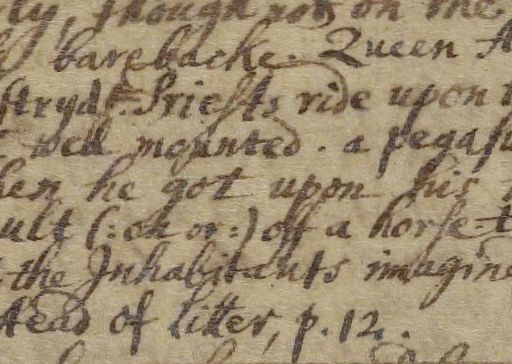 ty, though not on the
barebacke. Queen A
strydt. Priests ride upon
well mounted. a pegasu
hen he got upon his
ault (: on or :) off a horse-t
the Inhabitants imagine
stead of litter, p. 12.